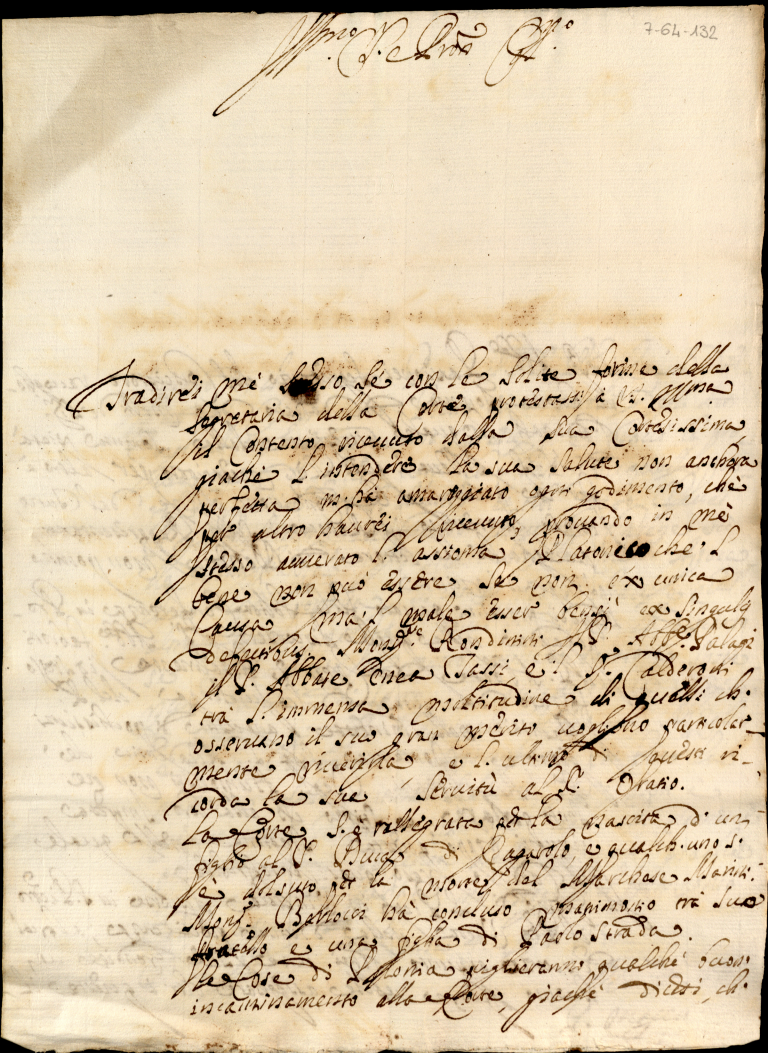 7-64-132
Illmo. S. e Pron Col.mo
Tradirei me stesso, sé con le solite forme della
Segretaria della Corte protestassi a VS. Illma
il contento riceuuto dalla sua Cortesissima
giaché l'intendere la sua salute non anchora
perfetta m'hà amareggiato ogni godimento, che
per altro haurei riceuuto, prouando in me
stesso auuerato l'assioma Platonico che l
bene non può essere se non ex unica
Causa mà l male esser bensì ex singulis
defectibus. Mons.re Rondinini il S. Abbe. Palagi
il S. Abbate Enea Tassi, e l S. Calderoni
trà l'immensa moltitudine di quelli ch.
osseruano il suo gran merito uogliono particolar-
mente riuerirla, e l'ultimo di questi ri-
corda la sua seruitù al S. Oratio.
La Corte s'è rallegrata per la nascita d'un
figlio al S. Duca di e qualch'uno s.
è doluto per la morte del Marchese
Mons. hà concluso matrimonio trà suo
fratello e una figlia di Paolo Strada.
Le Cose di Polonia piglieranno qualche buon
incaminamento alla Corte, giaché dicesi, ch.